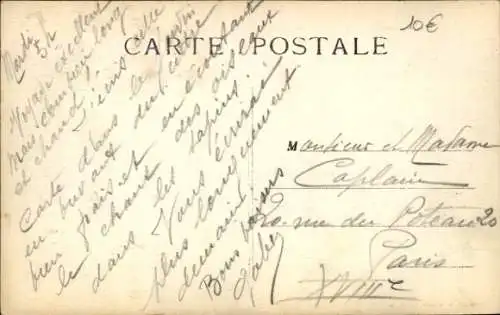 10€
CARTE POSTALE
Mardi 5h
Voyage excellent
mais combien long
et chaud. J'écris cette
carte dans le jardin
en buvant du cidre
bien frais et en écoutant
le chant des oiseaux
dans les sapins.
Vous écrirai
plus longuement
demain.
Bons baisers
Gaby
Monsieur et Madame
Caplain
20 rue du Poteau 20
Paris
XVIIIe